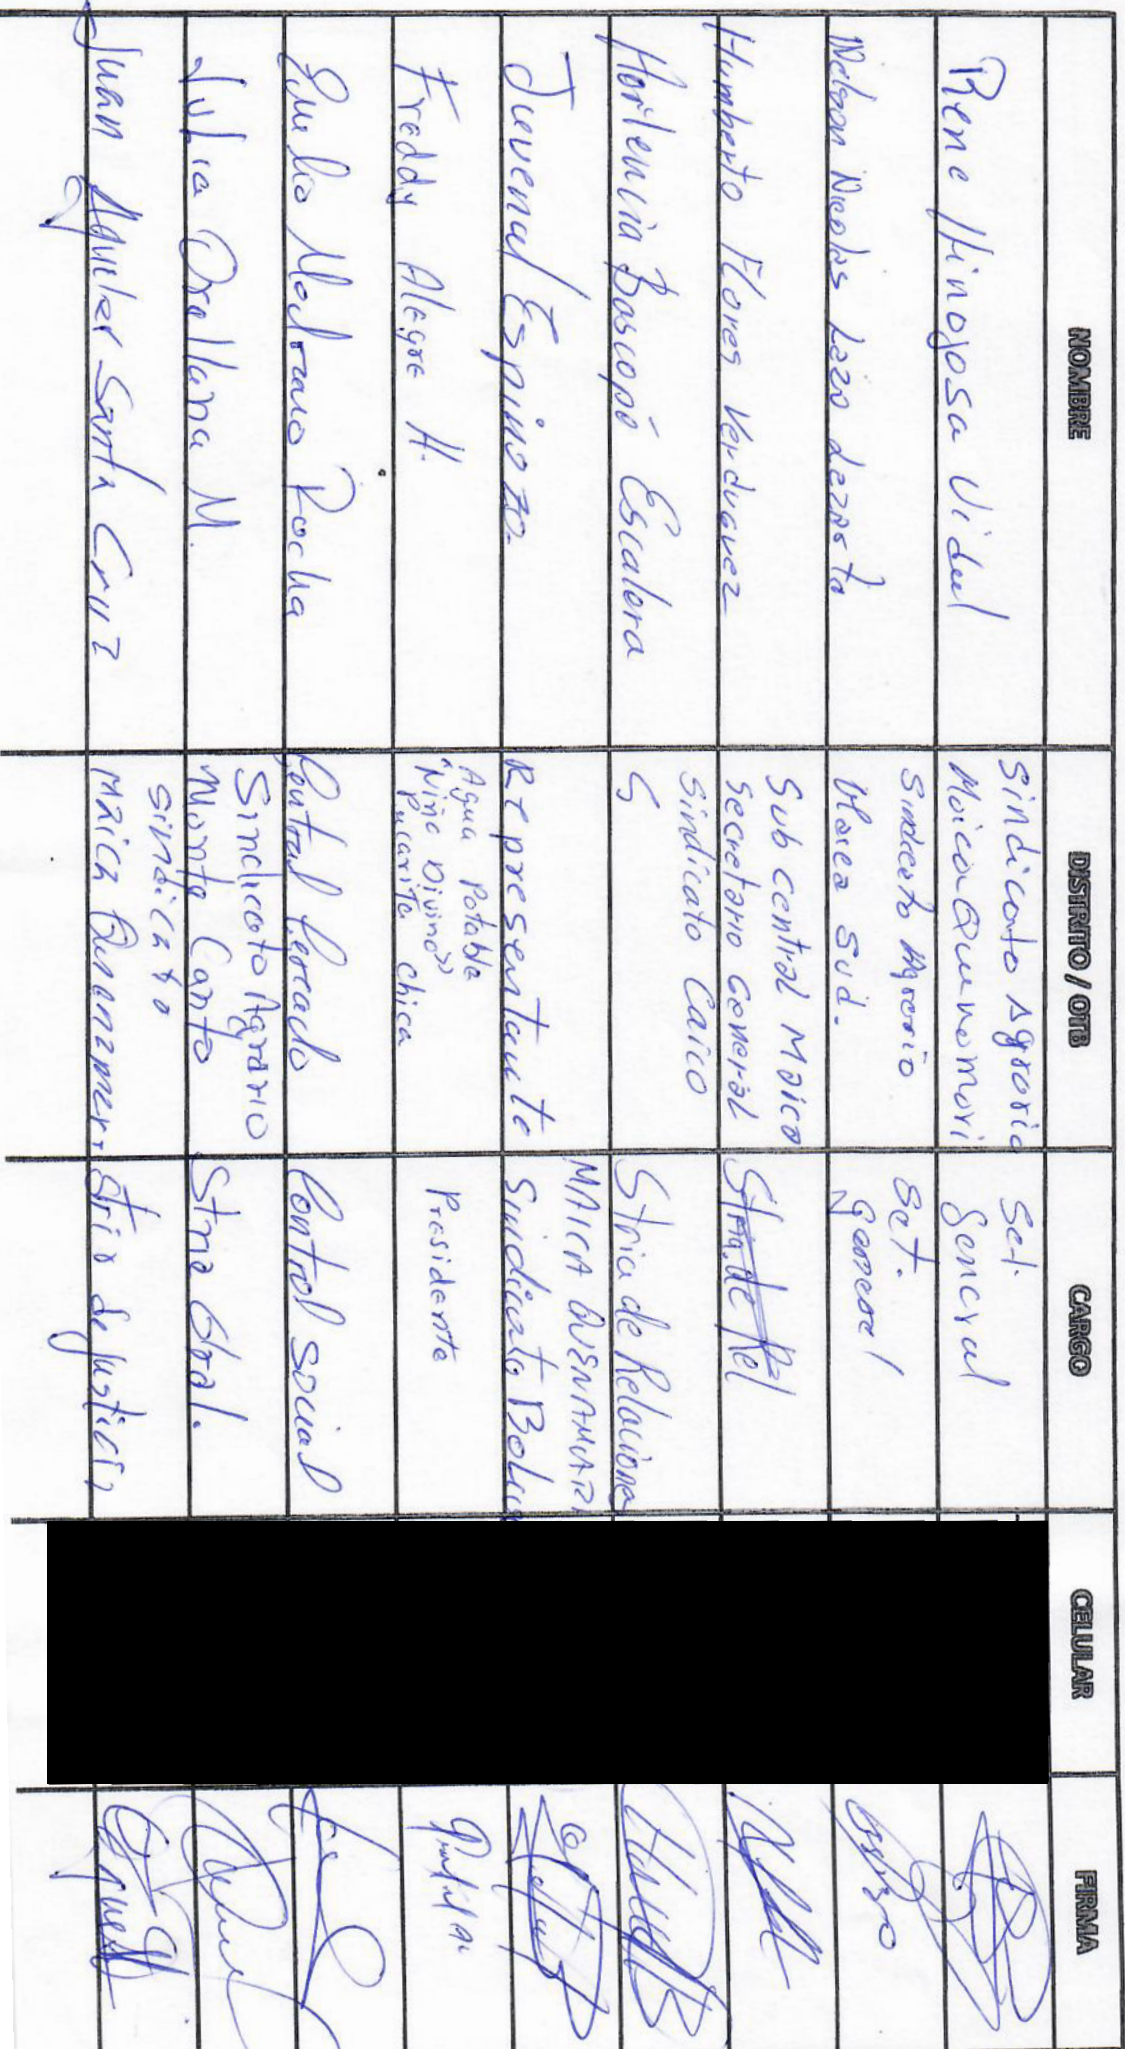 NOMBRE DISTRITO / OTB CARGO CELULAR FIRMA
Rene Hinojosa Vidal Sindicato Agrario Maica Quenamari Sct. General
Nelson Nicolas Lazo Lezasta Sindicato Agrario Maica Sud. Sct. General
Humberto Flores Verduguez Sub central Maica Secretario General Stria. de Rel
Hortencia Bascopé Escalera Sindicato Caico S Stria de Relaciones
Juvenal Espinoza Representante MAICA QUENAMARI Sindicato Boliv
Freddy Alegre H. Agua Potable "Niño Divino" Pucarita Chica Presidente
Emilio Medrano Rocha Central Cercado Control Social
Julia Orellana M. Sindicato Agrario Monto Canto Stria Gral.
Juan Aguilar Santa Cruz sindicato Maica Quenamari Strio de Justicia